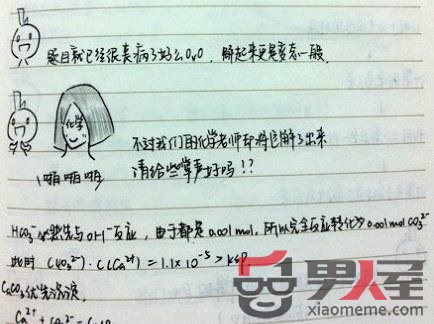 题目就已经很丧病了好么OvO，解起来更是变态一般.
化学
不过我们的化学老师却将它解了出来
请给些掌声好吗！??
啪啪啪
HCO₃⁻必然先与OH⁻反应，由于都是0.001mol，所以完全反应转化为0.001mol CO₃²⁻
此时 C(CO₃²⁻)·C(Ca²⁺)=1.1×10⁻⁵>Ksp
CaCO₃优先沉淀.
男人屋
xiaomeme.com